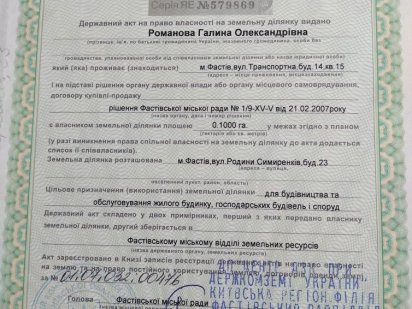 Серія ЯЕ №579869
Державний акт на право власності на земельну ділянку видано
Романова Галина Олександрівна
(прізвище, ім'я, по батькові громадянина України,
громадянства,
який (яка) проживає (знаходиться) м.Фастів,вул.Транспортна,буд.14,кв.15
(адреса - місце проживання, місцезнаходження)
на підставі рішення органу державної влади або органу місцевого самоврядування,
договору купівлі-продажу
рішення Фастівської міської ради № 1/9-XV-V від 21.02.2007року
(назва органу, дата і номер рішення)
є власником земельної ділянки площею 0.1000 га. у межах згідно з планом
(у разі виникнення права спільної власності на земельну ділянку до акта додається
список її співвласників).
Земельна ділянка розташована м.Фастів,вул.Родини Симиренків,буд.23
населений пункт, район, область)
Цільове призначення (використання) земельної ділянки для будівництва та
обслуговування жилого будинку, господарських будівель і споруд
Державний акт складено у двох примірниках, перший з яких передано власнику
земельної ділянки, другий зберігається в
Фастівському міському відділі земельних ресурсів
(назва органу)
Акт зареєстровано в Книзі записів реєстрації державних актів на право власності
на землю та на право постійного користування землею, договорів оренди землі
за №
Фастівської міської ради
ДЕРЖКОМЗЕМІ УКРАЇНИ
КИЇВСЬКА РЕГІОН.ФІЛІЯ